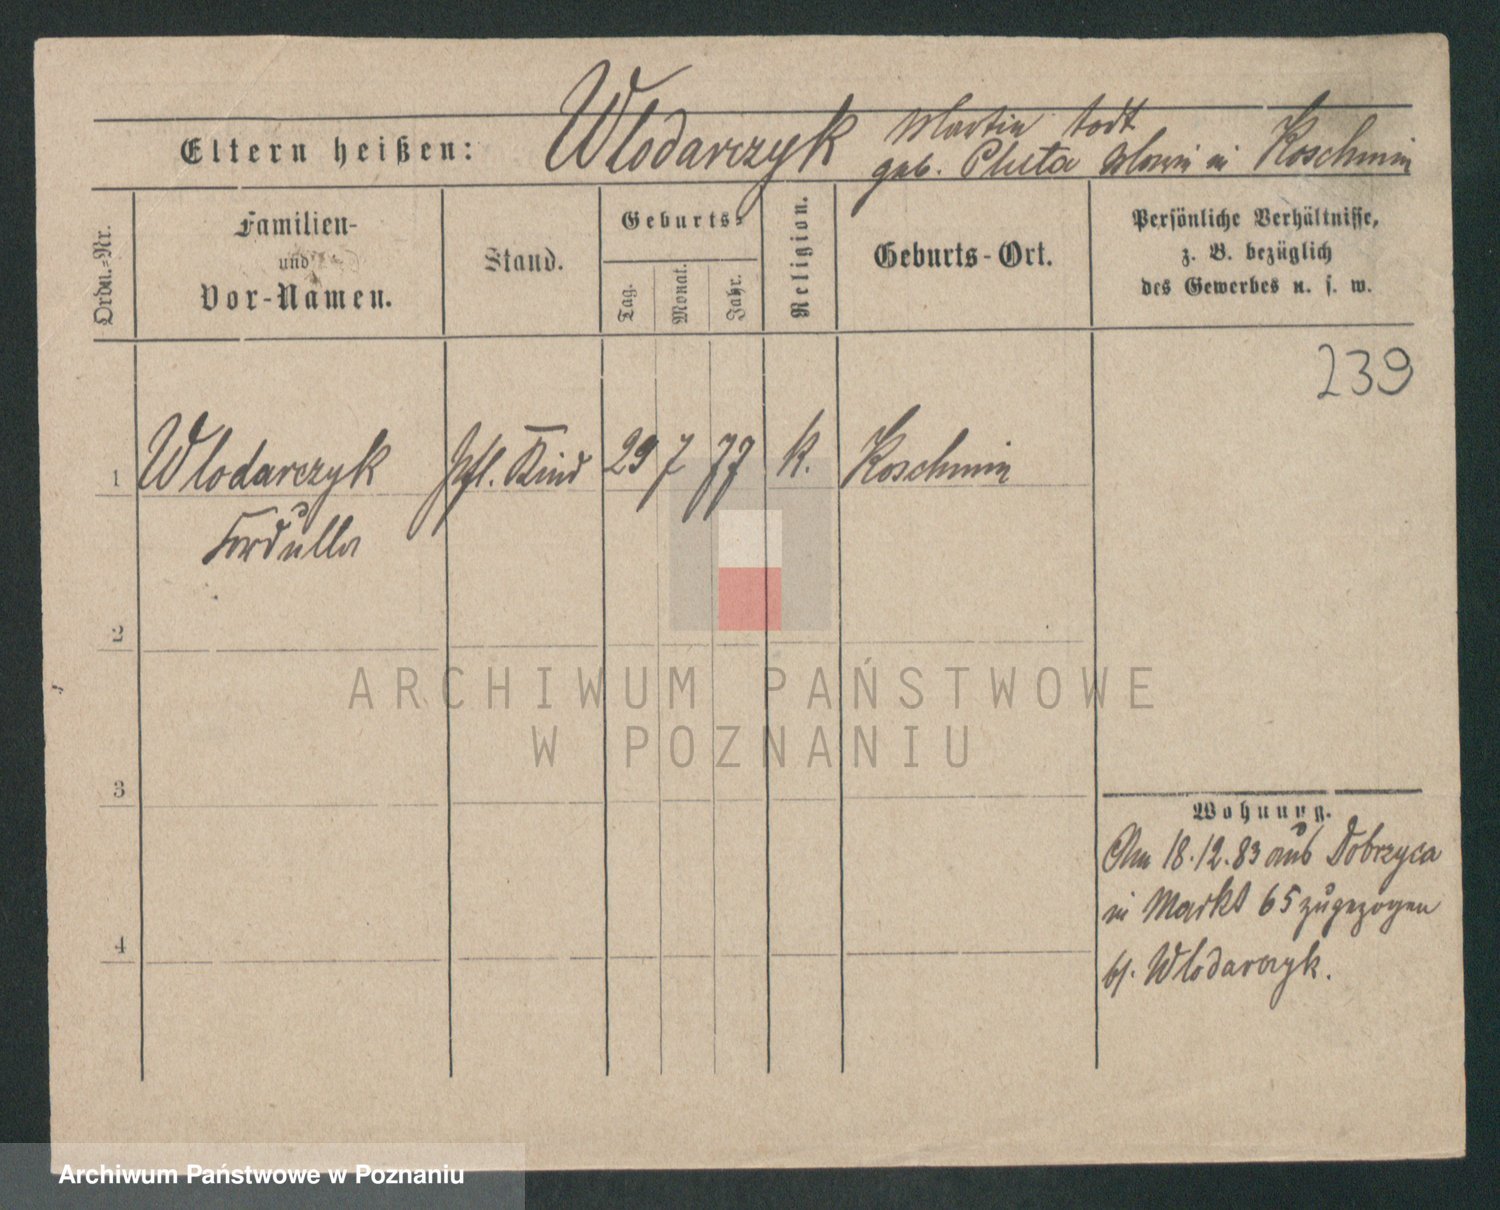 Eltern heißen: Wlodarczyk Martin todt
geb. Pluta in Koschmin
Ordn.-Nr.
Familien-
und
Vor-Namen.
Stand.
Geburts-
Tag.
Monat.
Jahr.
Religion.
Geburts-Ort.
Persönliche Verhältnisse,
z. B. bezüglich
des Gewerbes u. s. w.
239
1 Wlodarczyk Pfl. Kind 29 7 77 k. Koschmin
2
3
4
Wohnung.
Am 18.12.83 aus Dobrzyca
in Markt 65 zugezogen
bei Wlodarczyk.
ARCHIWUM PAŃSTWOWE
W POZNANIU
Archiwum Państwowe w Poznaniu